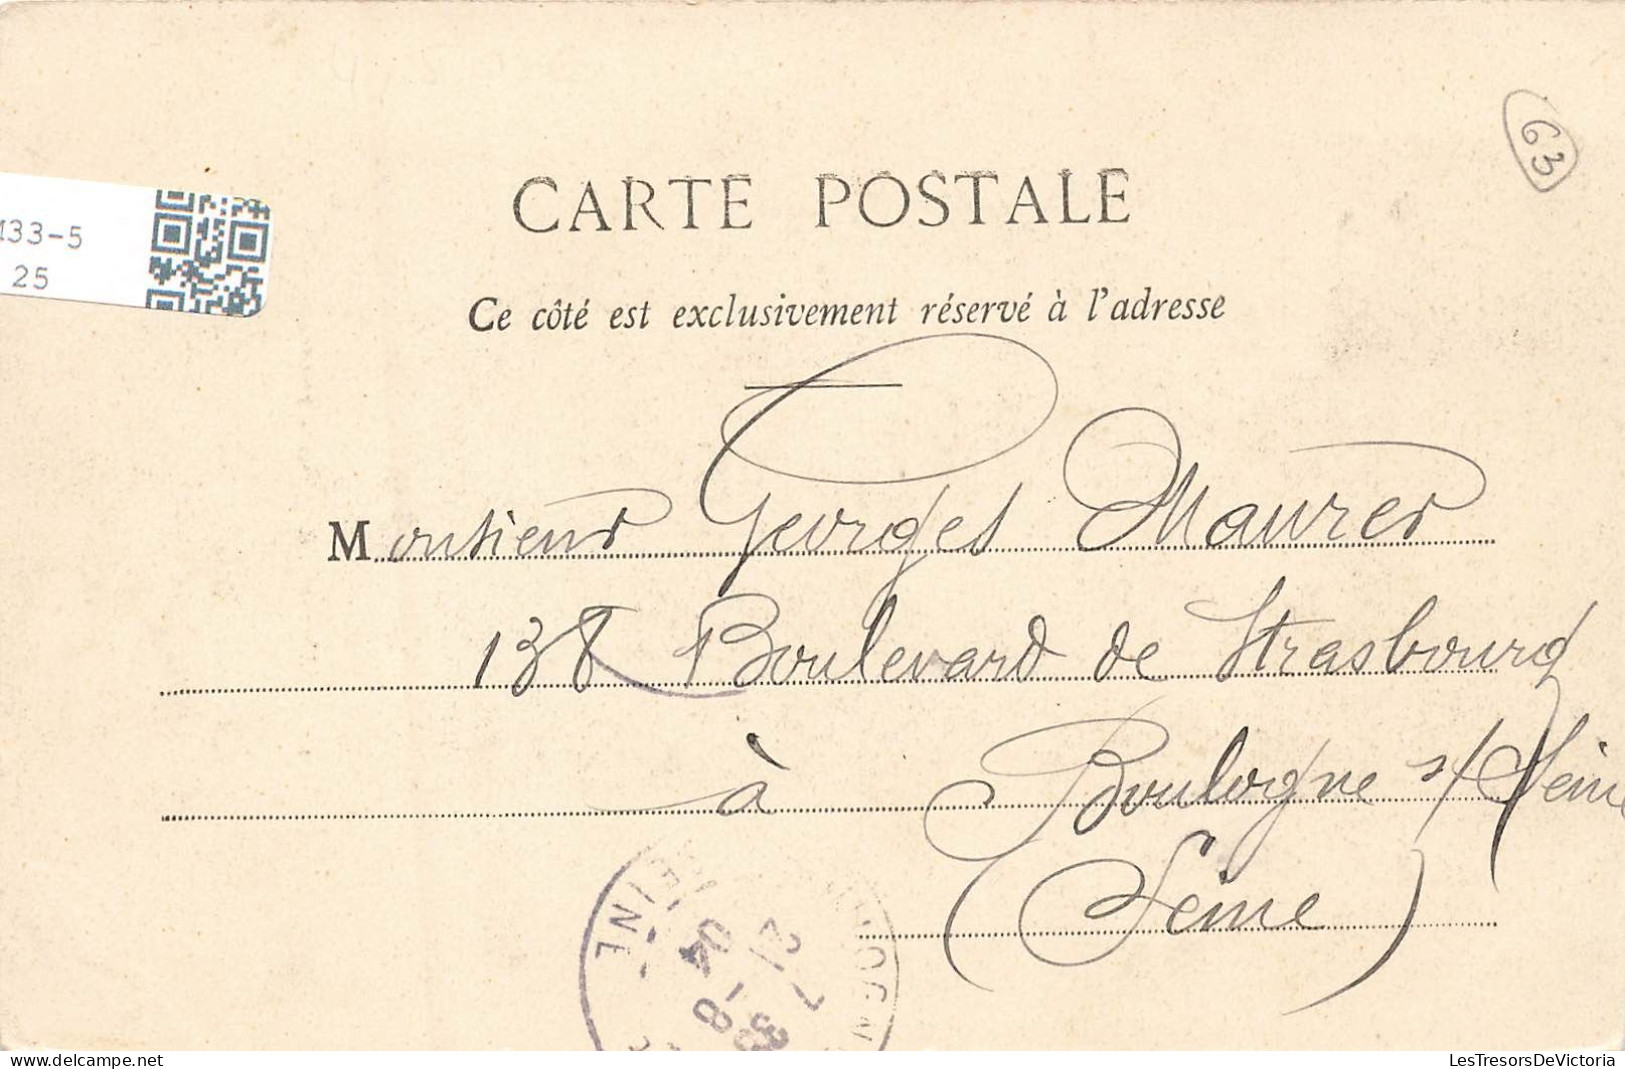 63
CARTE POSTALE
133-5
25
Ce côté est exclusivement réservé à l'adresse
Monsieur Georges Maurer
138 Boulevard de Strasbourg
à Boulogne s/ Seine
(Seine)
SEINE
7
21 - 8
04
delcampe.net
LesTresorsDeVictoria